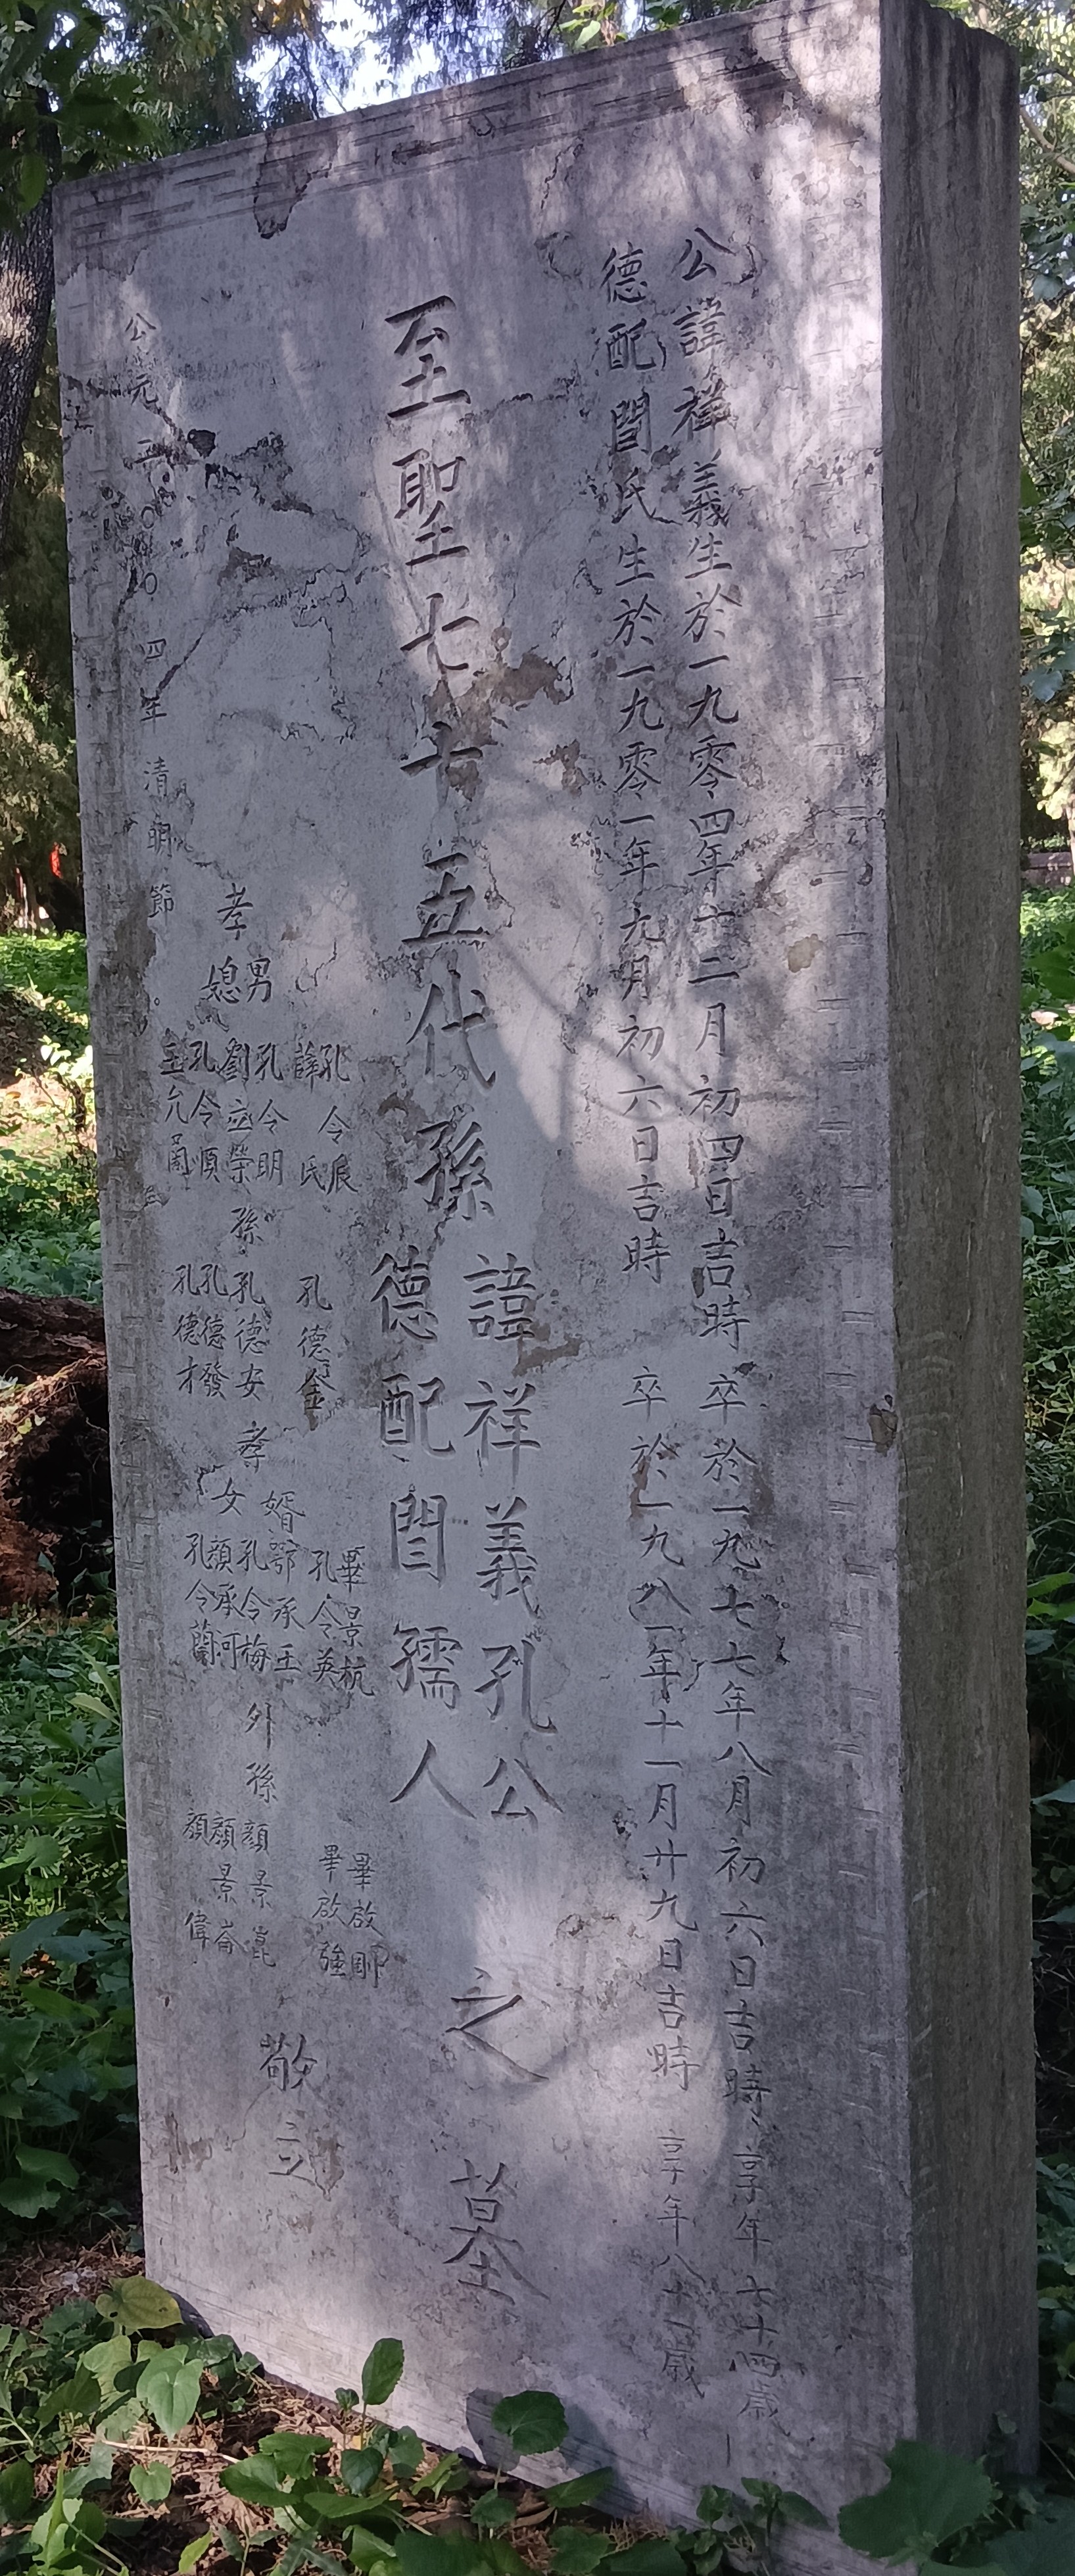 公諱祥義生於一九零四年十二月初四日吉時 卒於一九七七年八月初六日吉時 享年七十四歲
德配閆氏生於一九零一年九月初六日吉時 卒於一九八一年十一月廿九日吉時 享年八十一歲
至聖七十五代孫
諱祥義孔公
德配閆孺人
之墓
孝男
媳
孔令辰
薛氏
孔令明
劉立榮
孔令順
王允蘭
孫
孔德金
孔德安
孔德發
孔德才
孝
婿
女
畢景杭
孔令英
鄂承玉
孔令梅
顏承河
孔令蘭
外孫
畢啟剛
畢啟強
顏景崑
顏景崙
顏偉
敬立
公元二〇〇四年清明節